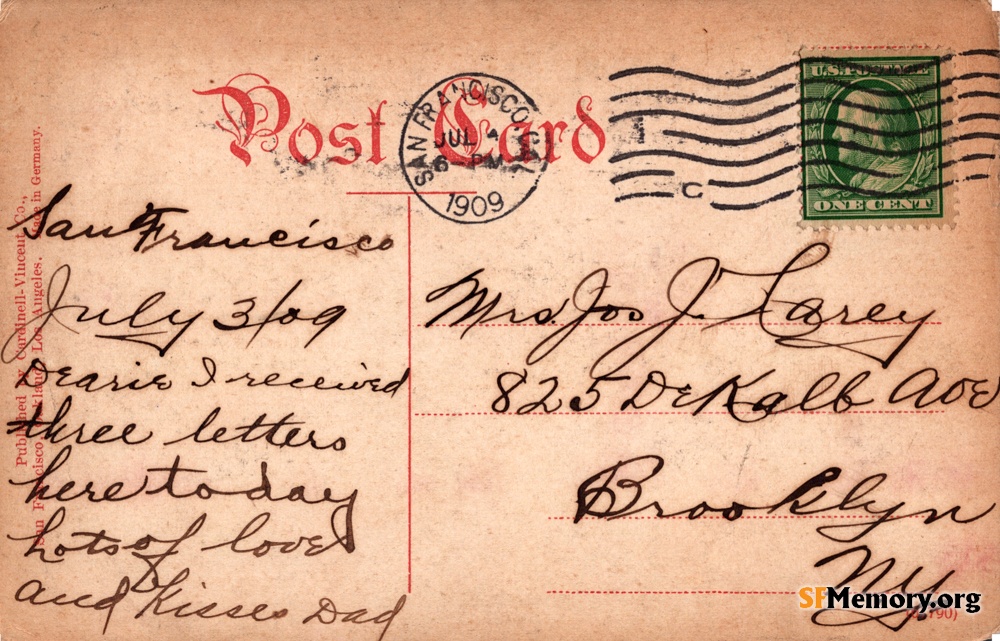 Post Card
SAN FRANCISCO, CAL.
JUL 4
6 - PM
1909
1
C
U.S. POSTAGE
ONE CENT
Published by Cardinell-Vincent Co.,
San Francisco, Oakland, Los Angeles. Made in Germany.
San Francisco
July 3/09
Dearie I received
three letters
here today
Lots of love
and Kisses Dad
Mrs. Jos J.
825 DeKalb Ave
Brooklyn
NY.
SFMemory.org